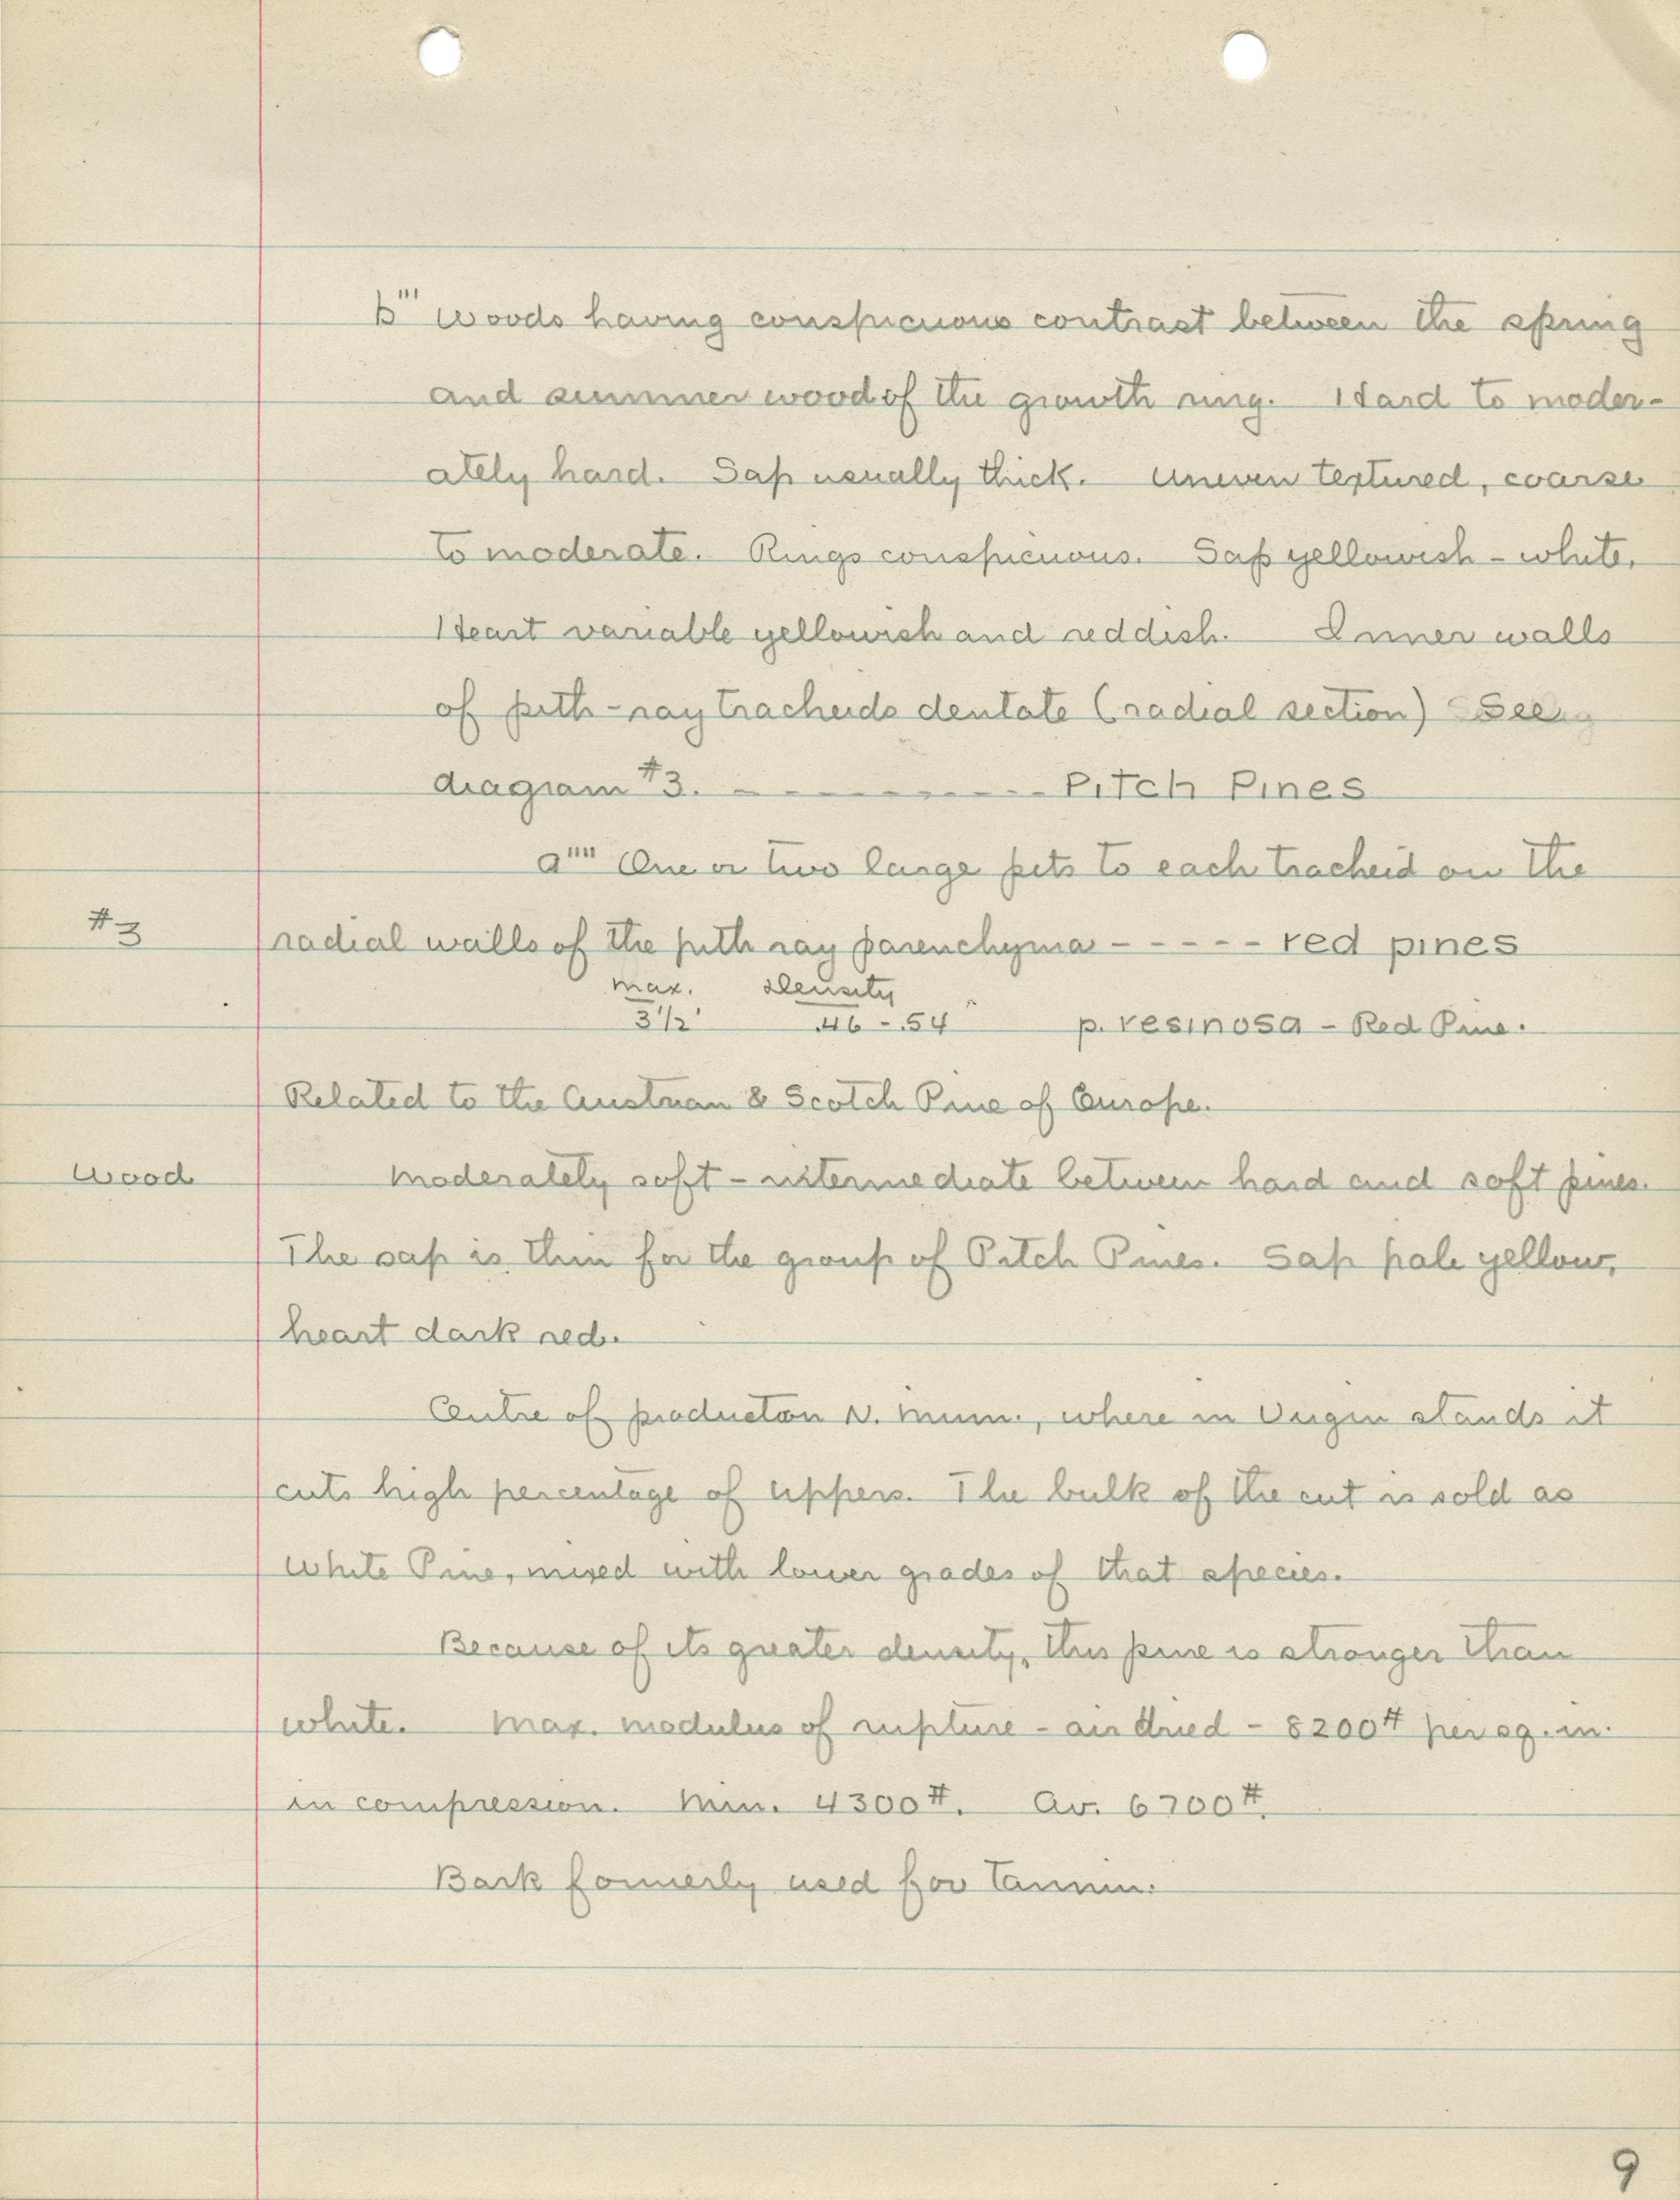 b''' Woods having conspicuous contrast between the spring
and summer wood of the growth ring. Hard to moder-
ately hard. Sap usually thick. Uneven textured, coarse
to moderate. Rings conspicuous. Sap yellowish - white.
Heart variable yellowish and reddish. Inner walls
of pith-ray tracheids dentate (radial section) See
diagram #3. - - - - - - - - - Pitch Pines
a'''' One or two large pits to each tracheid on the
#3 radial walls of the pith ray parenchyma - - - - - red pines
max. Density
3 1/2' .46 - .54 p. resinosa - Red Pine.
Related to the Austrian & Scotch Pine of Europe.
Wood Moderately soft - intermediate between hard and soft pines.
The sap is thin for the group of Pitch Pines. Sap pale yellow,
heart dark red.
Centre of producton N. Minn., where in Virgin stands it
cuts high percentage of uppers. The bulk of the cut is sold as
White Pine, mixed with lower grades of that species.
Because of its greater density, this pine is stronger than
white. Max. modulus of rupture - air dried - 8200# per sq. in.
in compression. Min. 4300#. Av. 6700#.
Bark formerly used for Tannin.
9